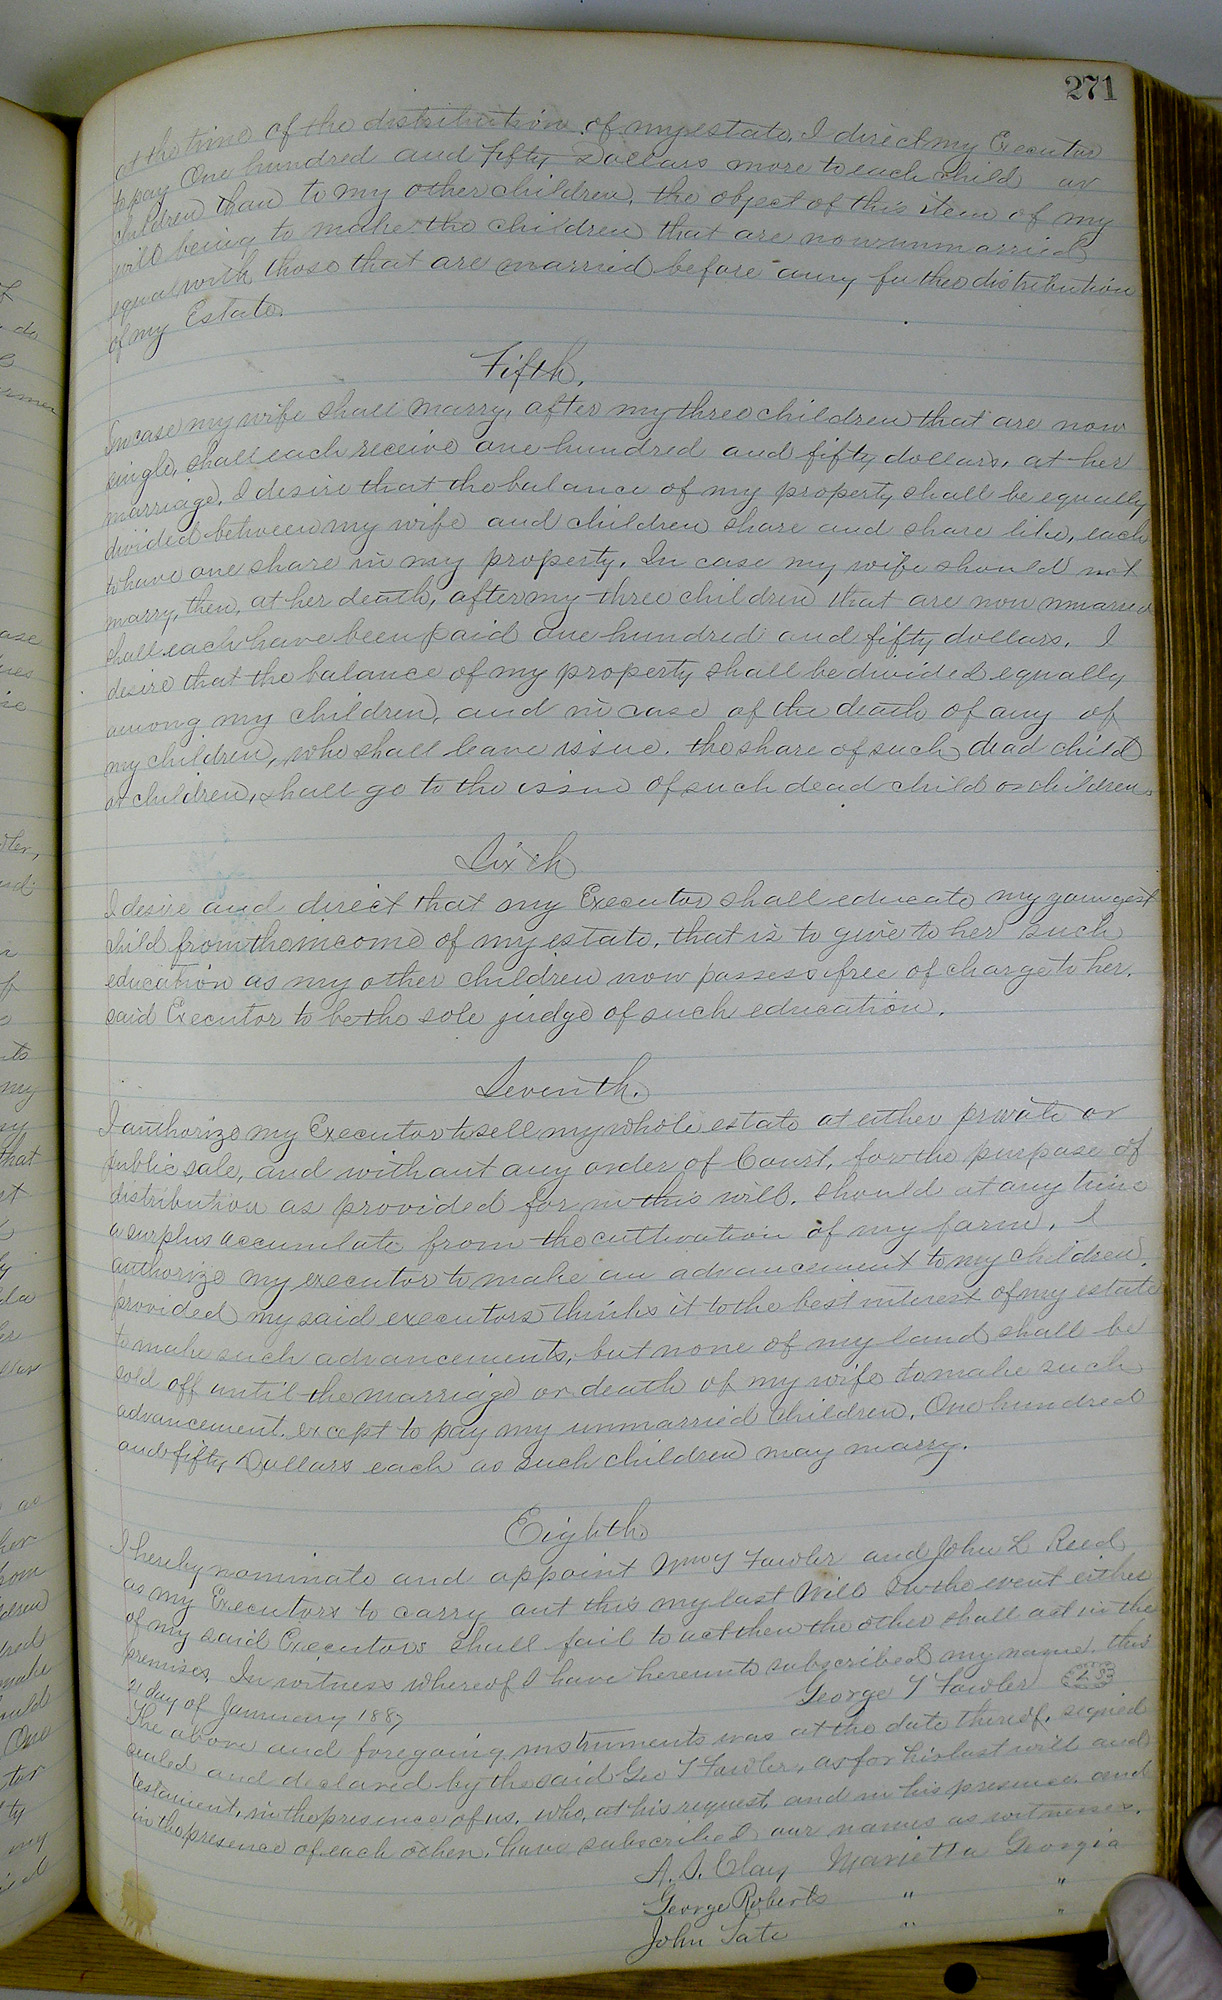 271
at the time of the distribution of my estate, I direct my Executor
to pay One hundred and Fifty Dollars more to each child or
children than to my other children, the object of this item of my
will being to make the children that are now unmarried
equal with those that are married before any futher distribution
of my Estate.
Fifth,
In case my wife shall marry, after my three children that are now
single, shall each receive one hundred and fifty dollars, at her
marriage, I desire that the balance of my property shall be equally
divided between my wife and children share and share like, each
to have one share in my property. In case my wife should not
marry, then, at her death, after my three children that are now unmarried
shall each have been paid one hundred and fifty dollars. I
desire that the balance of my property shall be divided equally
among my children, and in case of the death of any of
my children, who shall leave issue. the share of such dead child
or children, shall go to the issue of such dead child or children.
Sixth
I desire and direct that my Executor shall educate my youngest
child from the income of my estate, that is to give to her such
education as my other children now possess free of charge to her.
said Executor to be the sole judge of such education.
Seventh.
I authorize my Executor to sell my whole estate at either private or
public sale, and without any order of Court, for the purpose of
distribution as provided for in this will. Should at any time
a surplus accumulate from the cultivation of my farm, I
authorize my executor to make an advancement to my children,
provided my said executors thinks it to the best interest of my estate
to make such advancements, but none of my land shall be
sold off until the marriage or death of my wife to make such
advancement. except to pay my unmarried children, One hundred
and fifty Dollars each as such children may marry.
Eighth
I hereby nominate and appoint Fowler and John L Reed
as my Executors to carry out this my last Will In the event either
of my said Executors shall fail to act then the other shall act in the
premises. In witness whereof I have hereunto subscribed my name this
21 day of January 1887 George T Fowler L S
The above and foregoing instruments was at the date thereof, signed
sealed and declared by the said Geo T Fowler, as for his last will and
testament, in the presence of us, who, at his request, and in his presence, and
in the presence of each other, have subscribed our names as witnesses.
A. S. Clay Marietta Georgia
George Roberts " "
John Tate " "